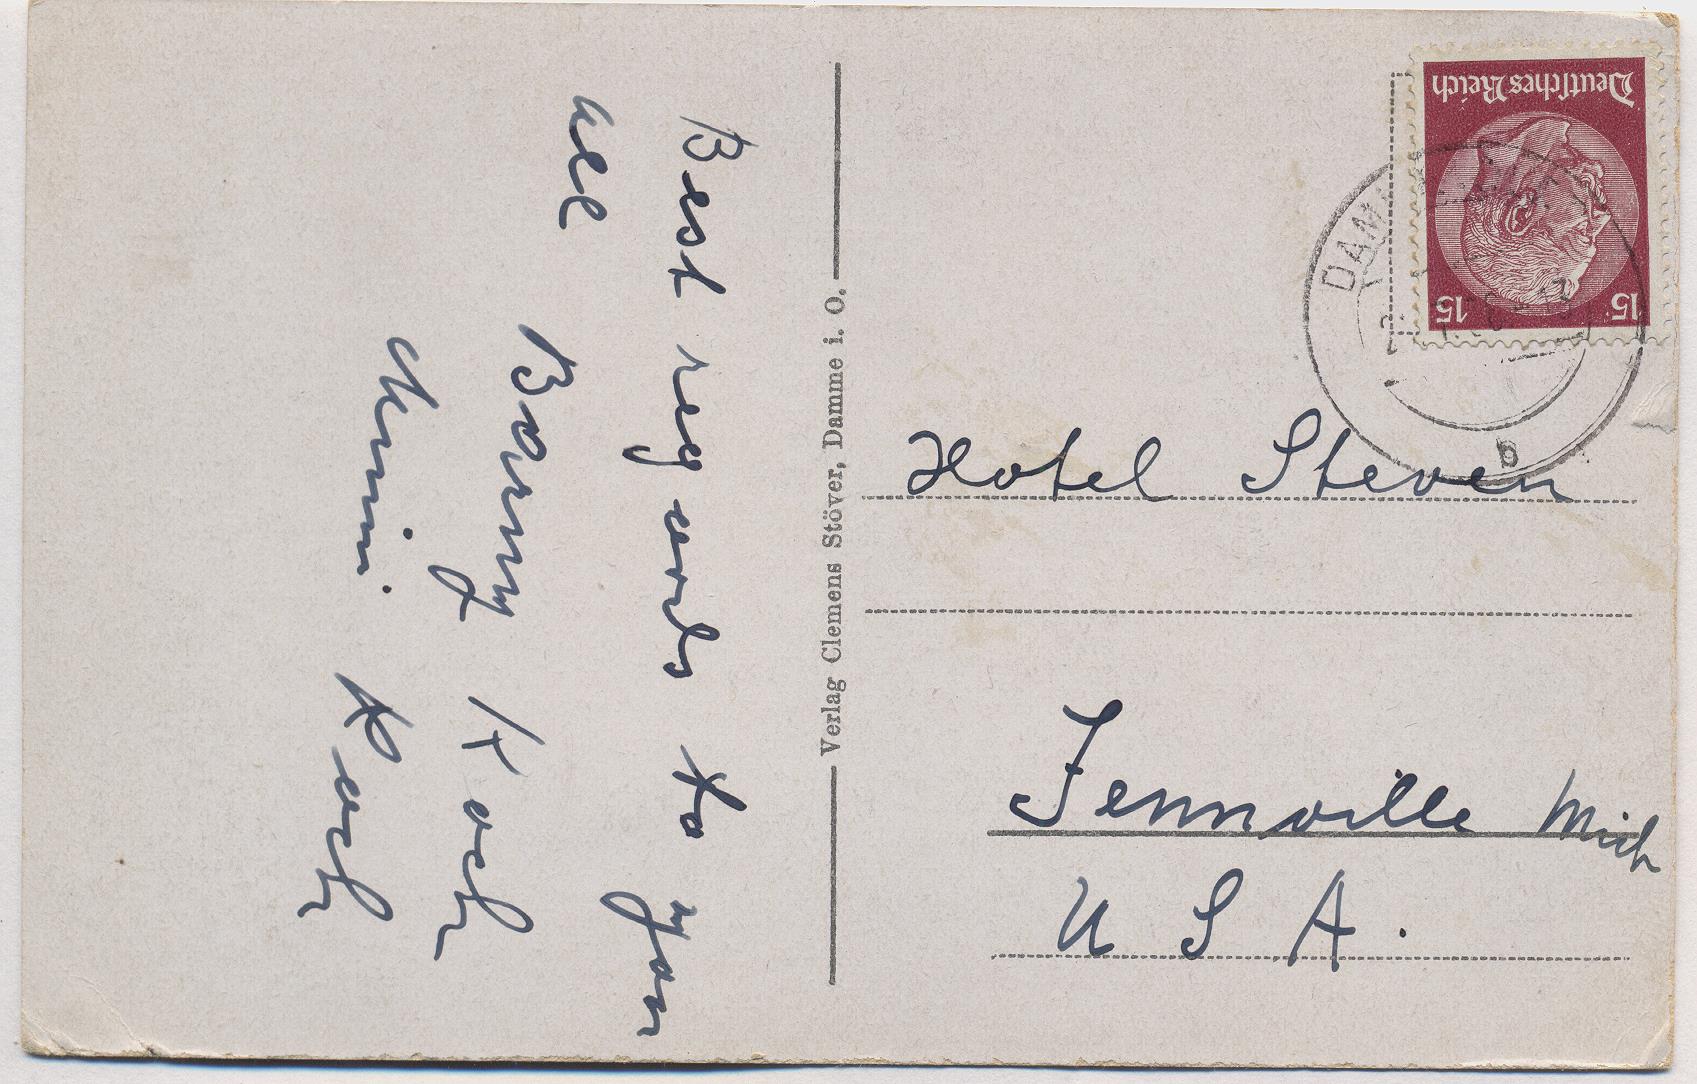 Best regards to you
all
Barny Koch
Mimi Koch
Verlag Clemens Stöver, Damme i. O.
Deutsches Reich
15 15
DAM
b
Hotel Steven
Fennville Mich
U S A.